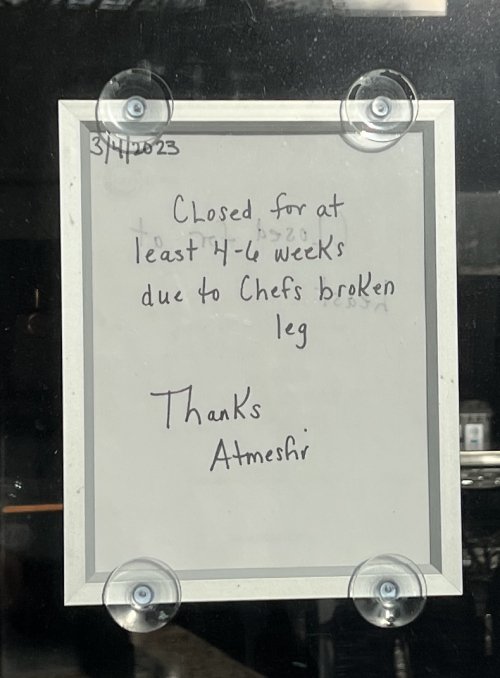 3/4/2023
Closed for at
least 4-6 weeks
due to Chefs broken
leg
Thanks
Atmeshi